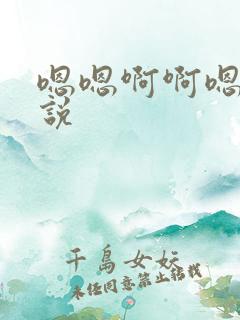 嗯嗯啊啊嗯
說
千島女妖
未经同意禁止转载